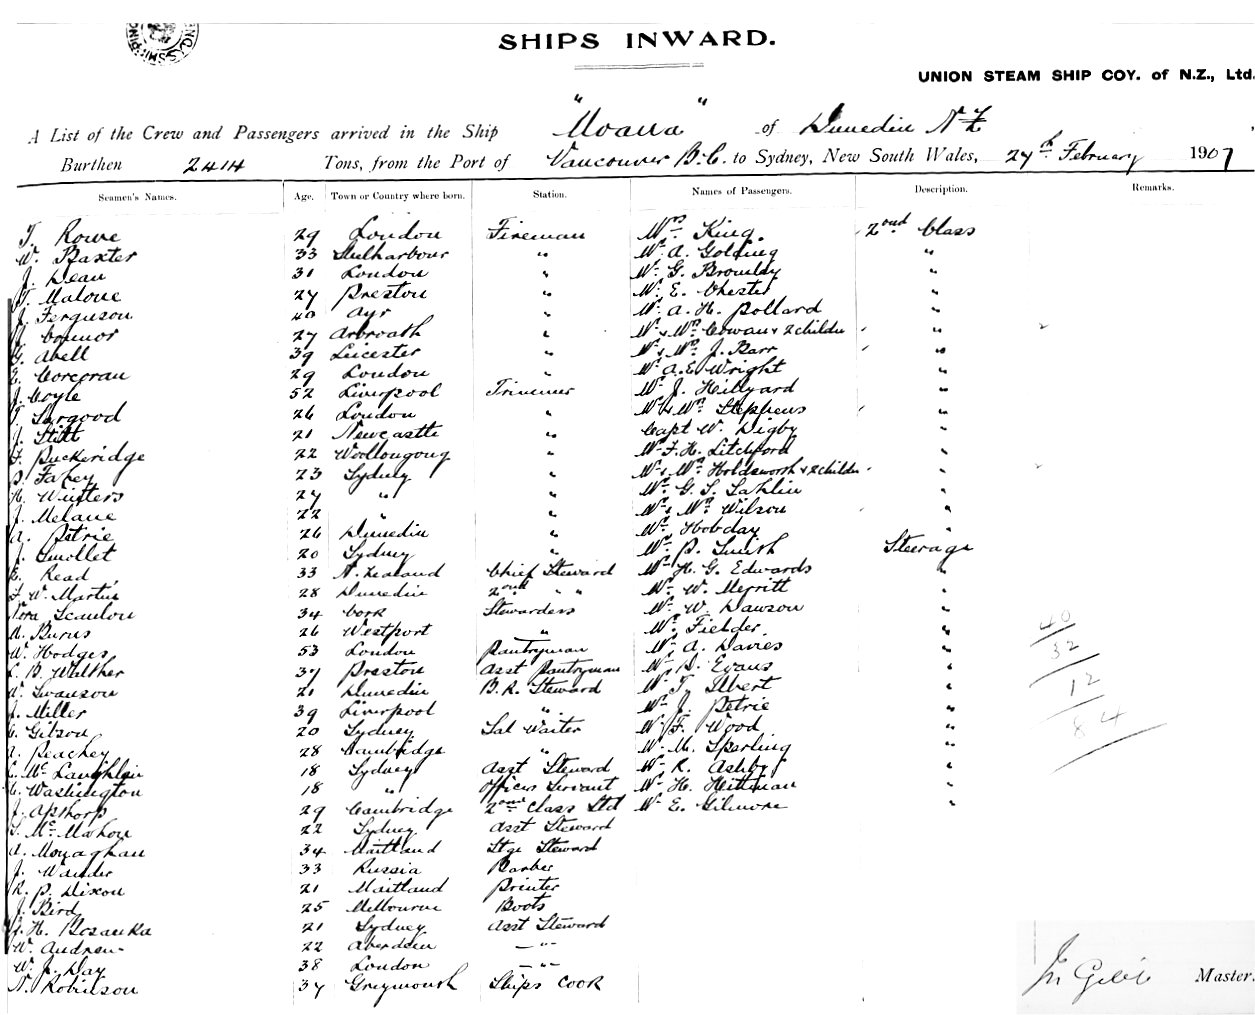 SHIPS INWARD.
UNION STEAM SHIP COY. of N.Z., Ltd.
A List of the Crew and Passengers arrived in the Ship "Moana" of Dunedin NZ
Burthen 2414 Tons, from the Port of Vancouver B.C. to Sydney, New South Wales, 27th February 1907
Seamen's Names. Age. Town or Country where born. Station. Names of Passengers. Description. Remarks.
T. Rowe 29 London Fireman Mrs King. 2ond Class
W. Baxter 33 " Mr A. Golding "
J. Dean 31 London " Mr G. Bromley "
T. Malone 27 Preston " Mr E. Chester "
J. Ferguson 40 Ayr " Mr A. H. Pollard "
Connor 27 Arbroath " Mr & Mrs Cowan & 2 childn "
G. Abell 39 Leicester " Mr & Mrs J. Barr "
E. Corcoran 29 London " Mr A. E. Wright "
J. Coyle 52 Liverpool Trimmer Mr J. Hillyard "
T. Sargood 26 London " Mr & Mrs Stephens "
J. Stitt 21 Newcastle " Capt W. Digby "
F. Buckeridge 22 Woollongong " Mr F. H. Litchford "
P. Fahey 23 Sydney " Mr & Mrs Holdsworth & 2 childn "
H. Winters 27 " " Mr G. S. Sahlin "
J. Melane 22 " " Mr & Mrs Wilson "
A. Petrie 26 Dunedin " Mr Hobday "
J. Smollet 20 Sydney " Mr P. Smish Steerage
E. Read 33 N. Zealand Chief Steward Mr H. G. Edwards "
F. W. Martin 28 Dunedin 2ond " " Mr W. Merritt "
Nora Scanlon 34 Cork Stewardess Mr W. Dawson "
A. Burns 26 Westport " Mr Fielder. "
W. Hodges 53 London Pantryman Mr A. Davies "
L. B. Walther 37 Preston Asst Pantryman Mr D. Evans "
W. Swanson 21 Dunedin B. R. Steward Mr T. Ilbert "
J. Miller 39 Liverpool " Mr J. Petrie "
C. Gibson 20 Sydney Sal Waiter Mr F. Wood "
A. Peachey 28 Cambridge " Mr M. Sperling "
C. McLaughlin 18 Sydney Asst Steward Mr R. Ashby "
C. Washington 18 " Officers Servant Mr H. Hittman "
J. Apthorp 29 Cambridge 2ond Class Std Mr E. Gilmore "
S. McMahon 22 Sydney Asst Steward
A. Monaghan 34 Maitland Stge Steward
J. Wander 33 Russia Barber
R. P. Dixon 21 Maitland Printer
J. Bird 25 Melbourne Boots
H. Bosanka 21 Sydney Asst Steward
W. Andrew 22 Aberdeen — " —
W. J. Day 38 London — " —
N. Robinson 37 Greymouth Ships Cook
40
32
12
84
Master.